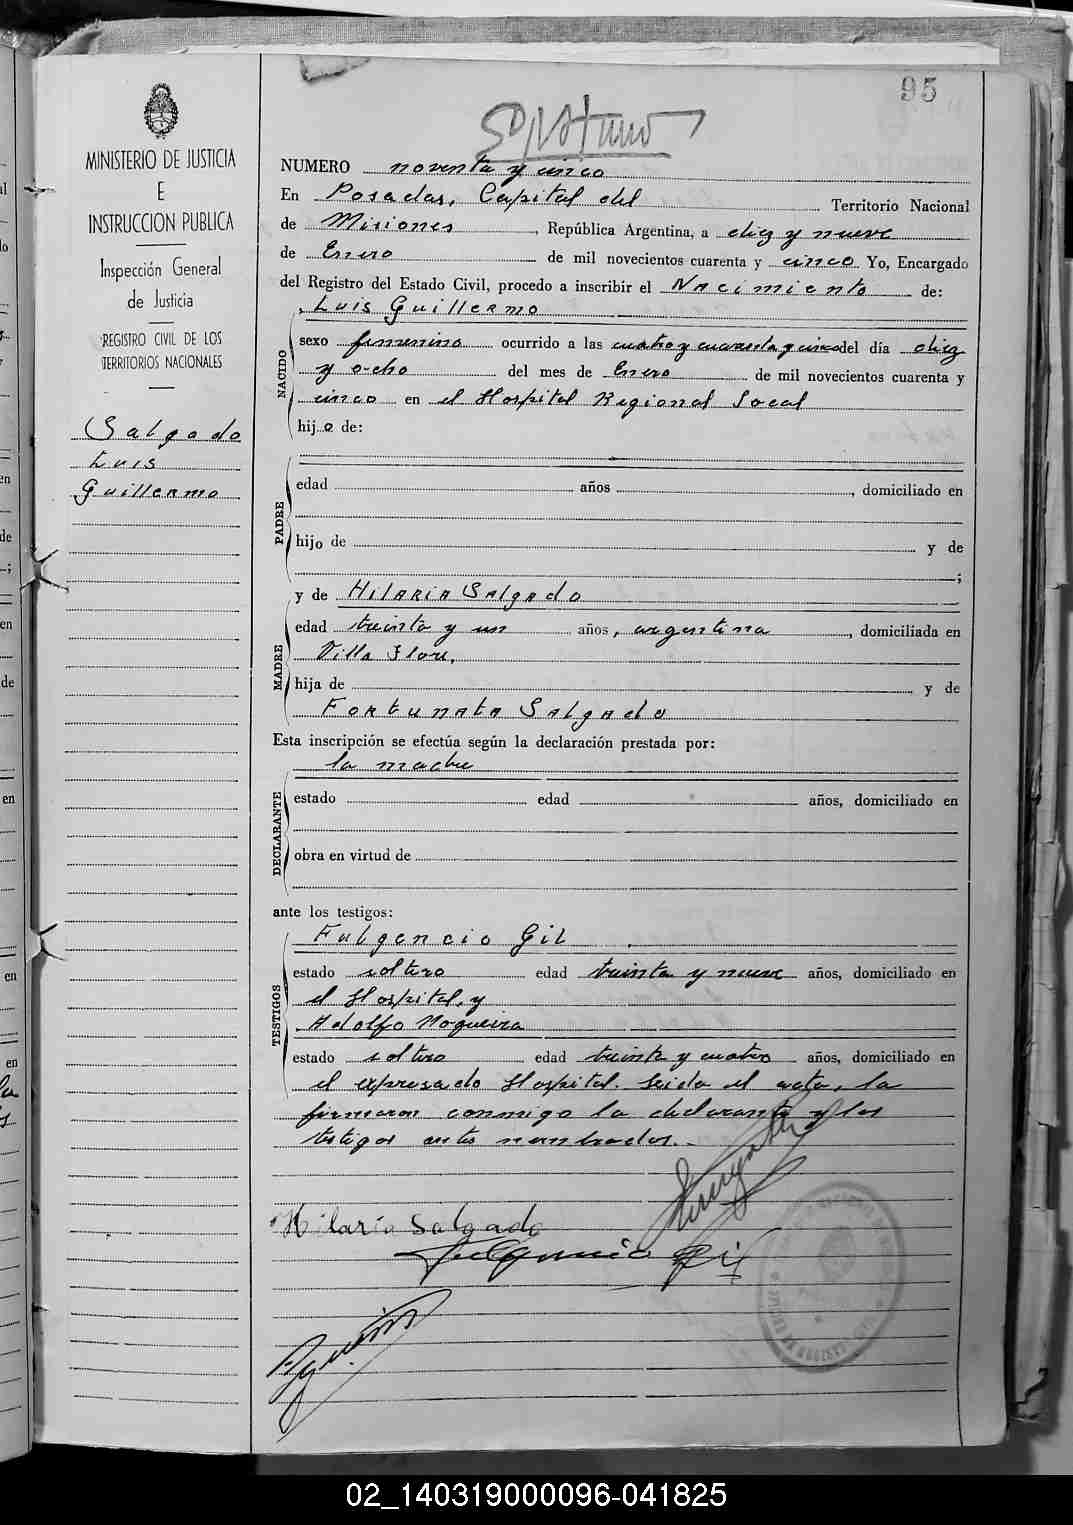 95
MINISTERIO DE JUSTICIA
E
INSTRUCCION PUBLICA
Inspección General
de Justicia
REGISTRO CIVIL DE LOS
TERRITORIOS NACIONALES
Salgado
Luis
Guillermo
NUMERO noventa y cinco
En Posadas, Capital del Territorio Nacional
de Misiones, República Argentina, a diez y nueve
de Enero de mil novecientos cuarenta y cinco Yo, Encargado
del Registro del Estado Civil, procedo a inscribir el Nacimiento de:
Luis Guillermo
NACIDO
sexo femenino ocurrido a las cuatro y cuarenta y cinco del día diez
y ocho del mes de Enero de mil novecientos cuarenta y
cinco en el Hospital Regional Local
hijo de:
PADRE
edad años, domiciliado en
hijo de y de
;
MADRE
y de Hilaria Salgado
edad treinta y un años, argentina, domiciliada en
Villa Flor,
hija de y de
Fortunata Salgado
Esta inscripción se efectúa según la declaración prestada por:
la madre
DECLARANTE
estado edad años, domiciliado en
obra en virtud de
ante los testigos:
TESTIGOS
Fulgencio Gil
estado soltero edad treinta y nueve años, domiciliado en
el Hospital, y
Adolfo Nogueira
estado soltero edad treinta y cuatro años, domiciliado en
el expresado Hospital. Leida el acta, la
firmaron conmigo la declarante y los
testigos antes nombrados.-
Hilaria Salgado
Fulgencio Gil
02_140319000096-041825